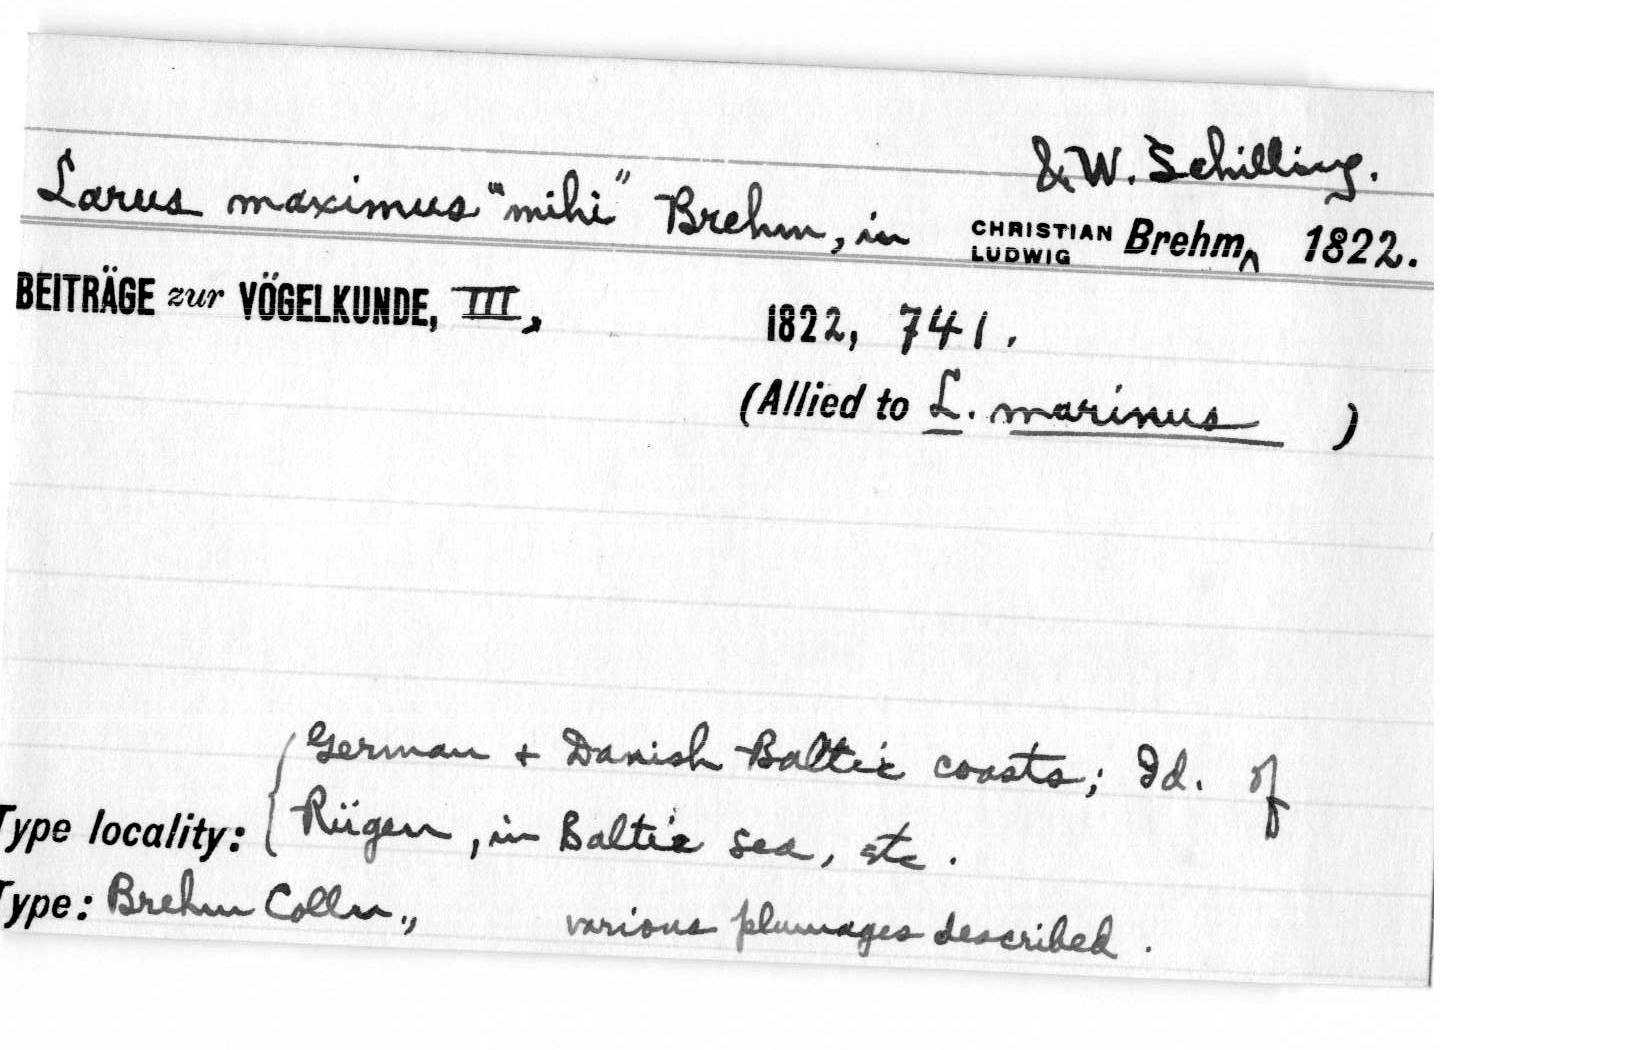 & W. Schilling.
Larus maximus "mihi" Brehm, in CHRISTIAN LUDWIG Brehm^ 1822.
BEITRÄGE zur VÖGELKUNDE, III, 1822, 741.
(Allied to L. marinus )
German + Danish Baltic coasts; Id. of
Type locality: { Rügen, in Baltic sea, etc.
Type: Brehm Colln., various plumages described.